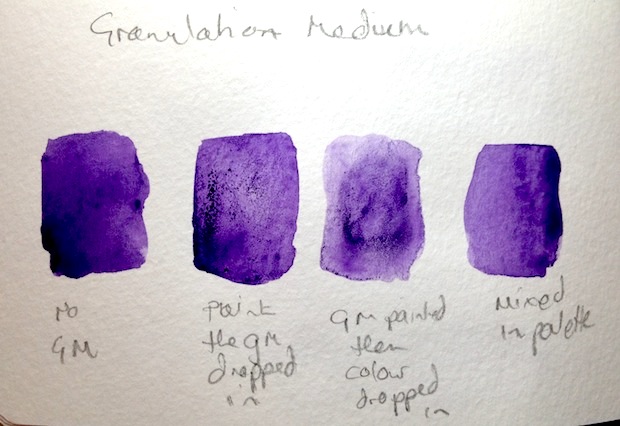 Granulation Medium
No
GM
Paint
the GM
dropped
in
GM painted
then
colour
dropped
in
Mixed
in palette